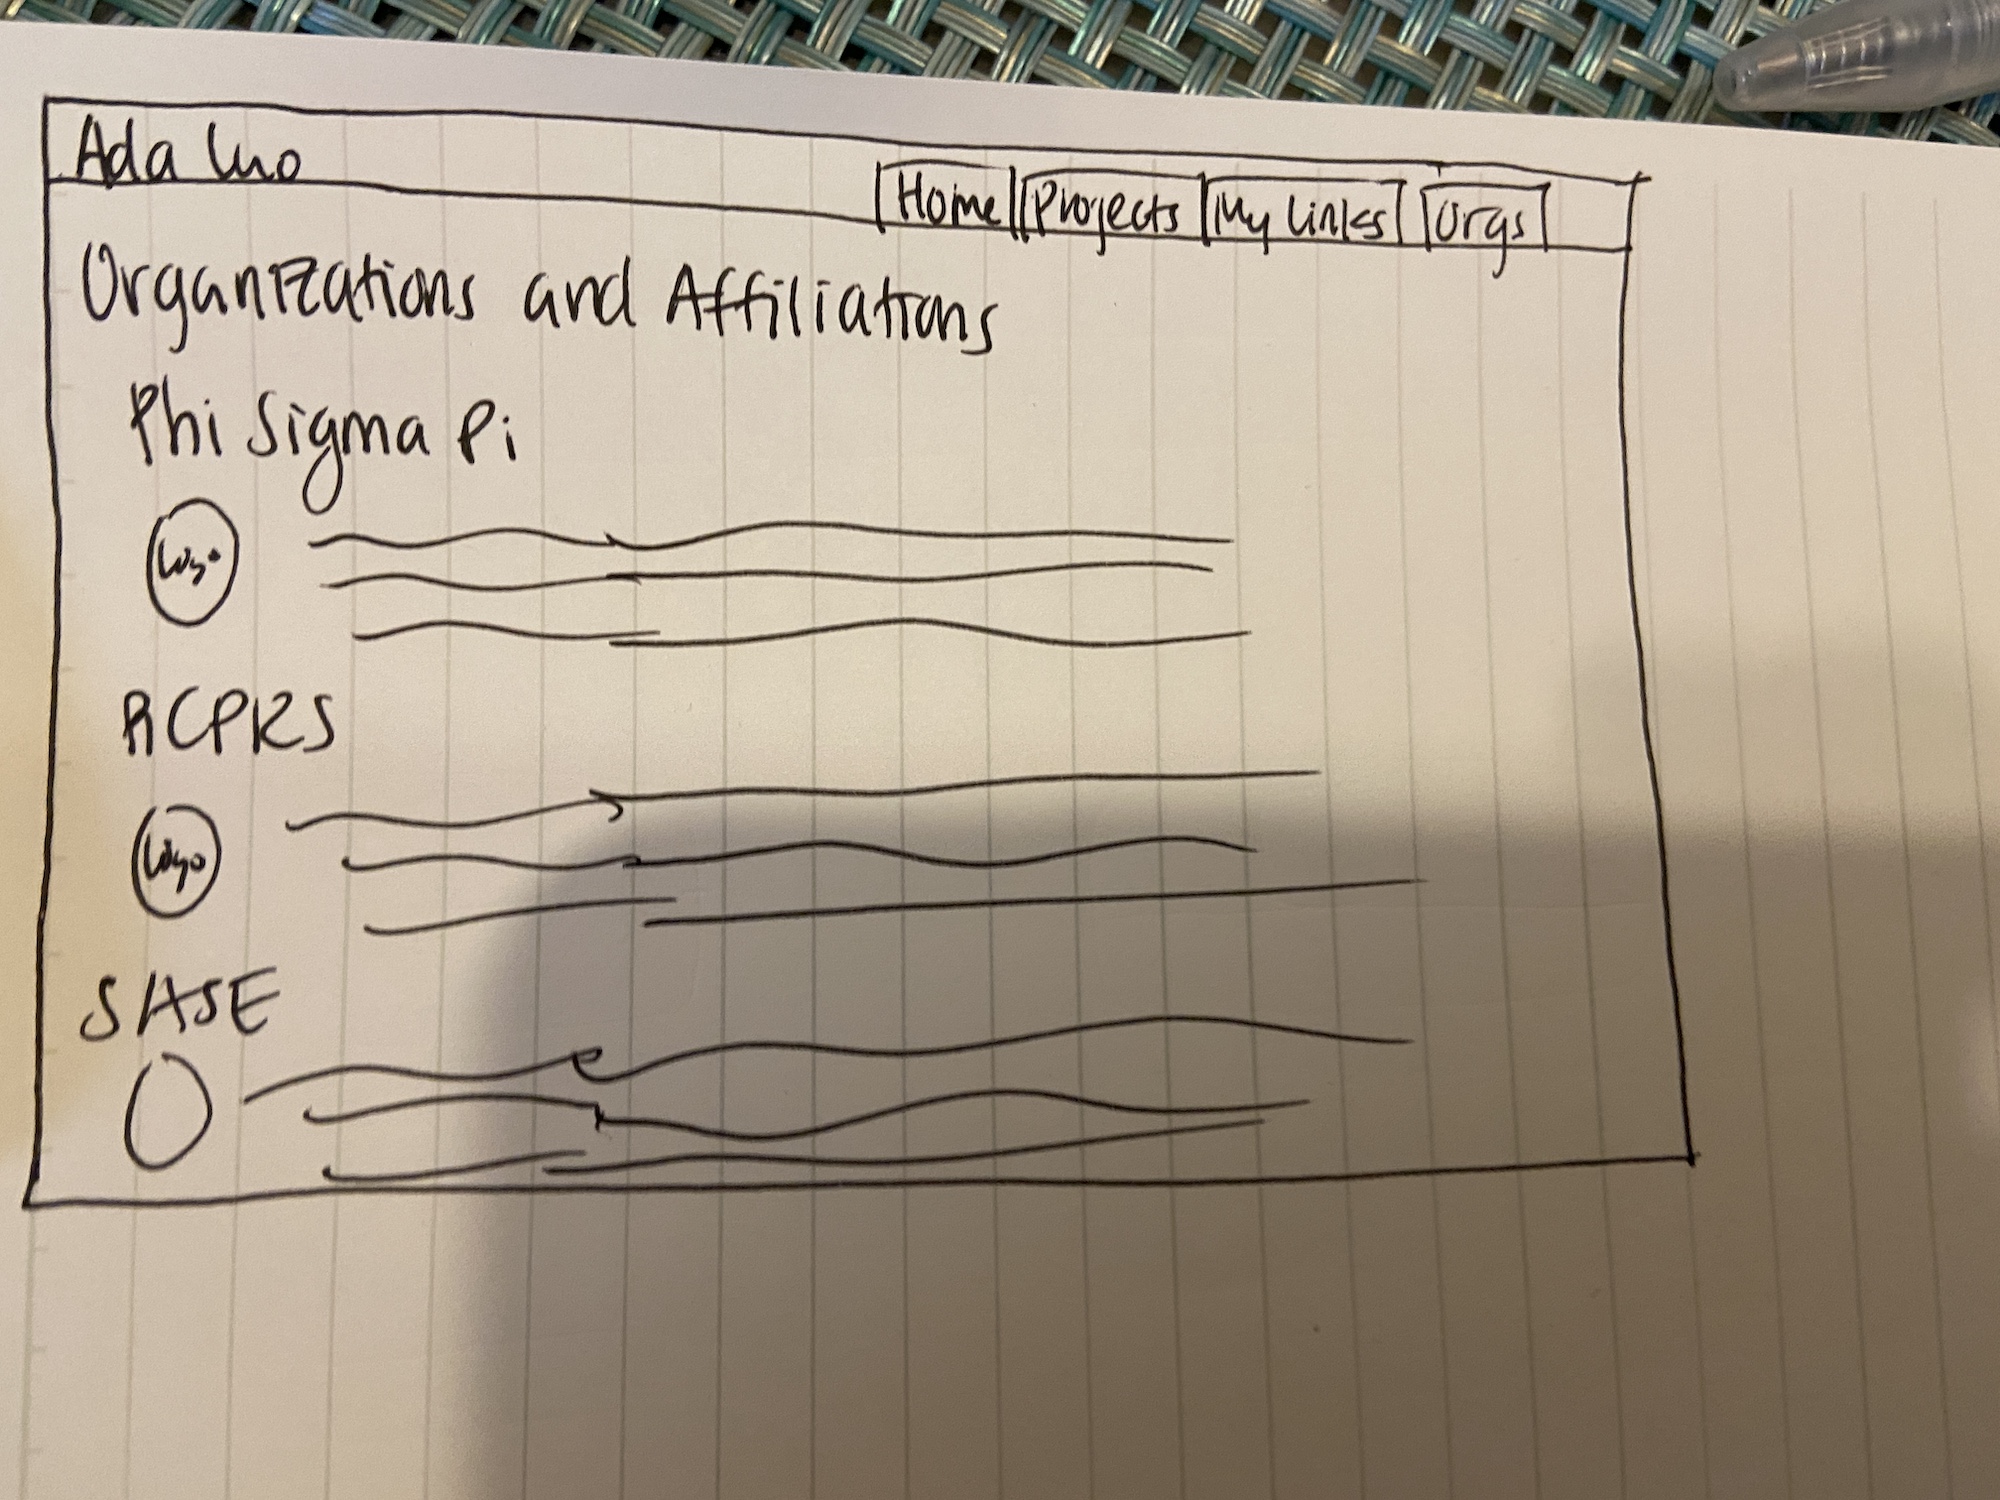 Ada Luo
Home Projects My Links Orgs
Organizations and Affiliations
Phi Sigma Pi
Logo
RCPRS
Logo
SASE